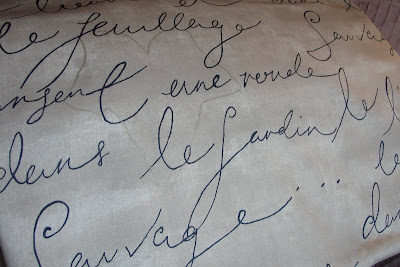 et
le feuillage Sauvage
dansent une ronde
dans le jardin
Sauvage... le
da